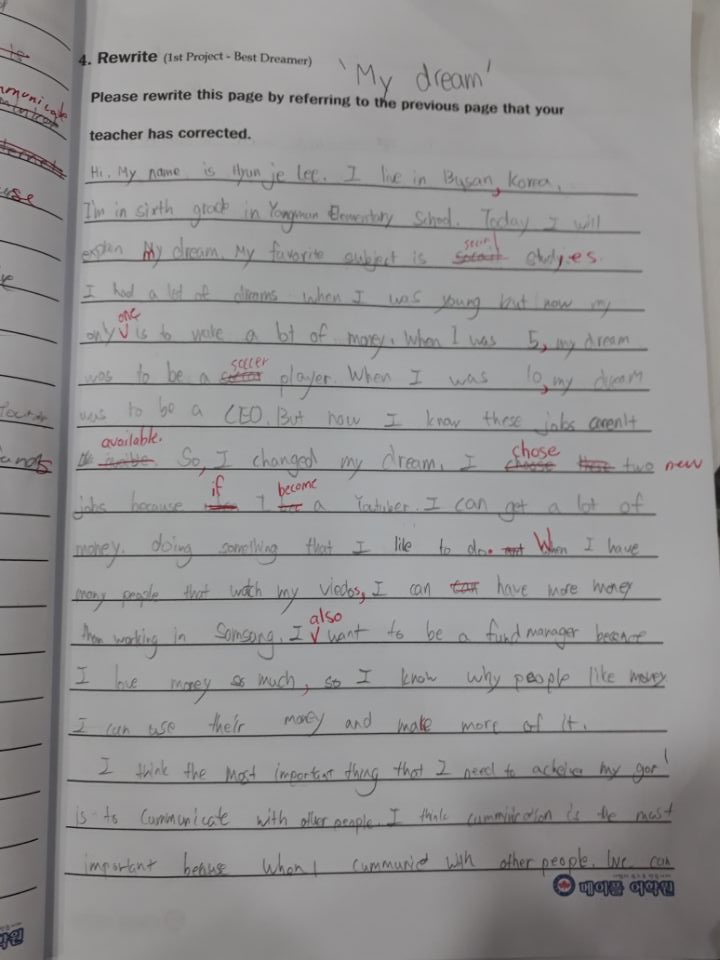 4. Rewrite (1st Project - Best Dreamer) 'My dream'
Please rewrite this page by referring to the previous page that your
teacher has corrected.
Hi. My name is Hyun je Lee. I live in Busan, Korea.
I'm in sixth grade in Yongmun Elementary School. Today I will
explan My dream. My favorite subject is social studyes.
I had a lot of dreams when I was young but now my
one
only is to make a lot of money. When I was 5, my dream
soccer
was to be a player. When I was 10, my dream
was to be a CEO. But now I know these jobs aren't
available. chose
So, I changed my dream. I two new
if become
jobs because I a Youtuber. I can get a lot of
money. doing something that I like to do. When I have
many people that watch my viedos, I can have more money
also
then working in Somsang. I want to be a fund manager because
I love money so much, so I know why people like money
I can use their money and make more of it.
I think the most important thing that I need to acheive my goal
is to Cummunicate with other people. I think is the most
important because When I with other people. We can
메이플 어학원
mmunicate
use